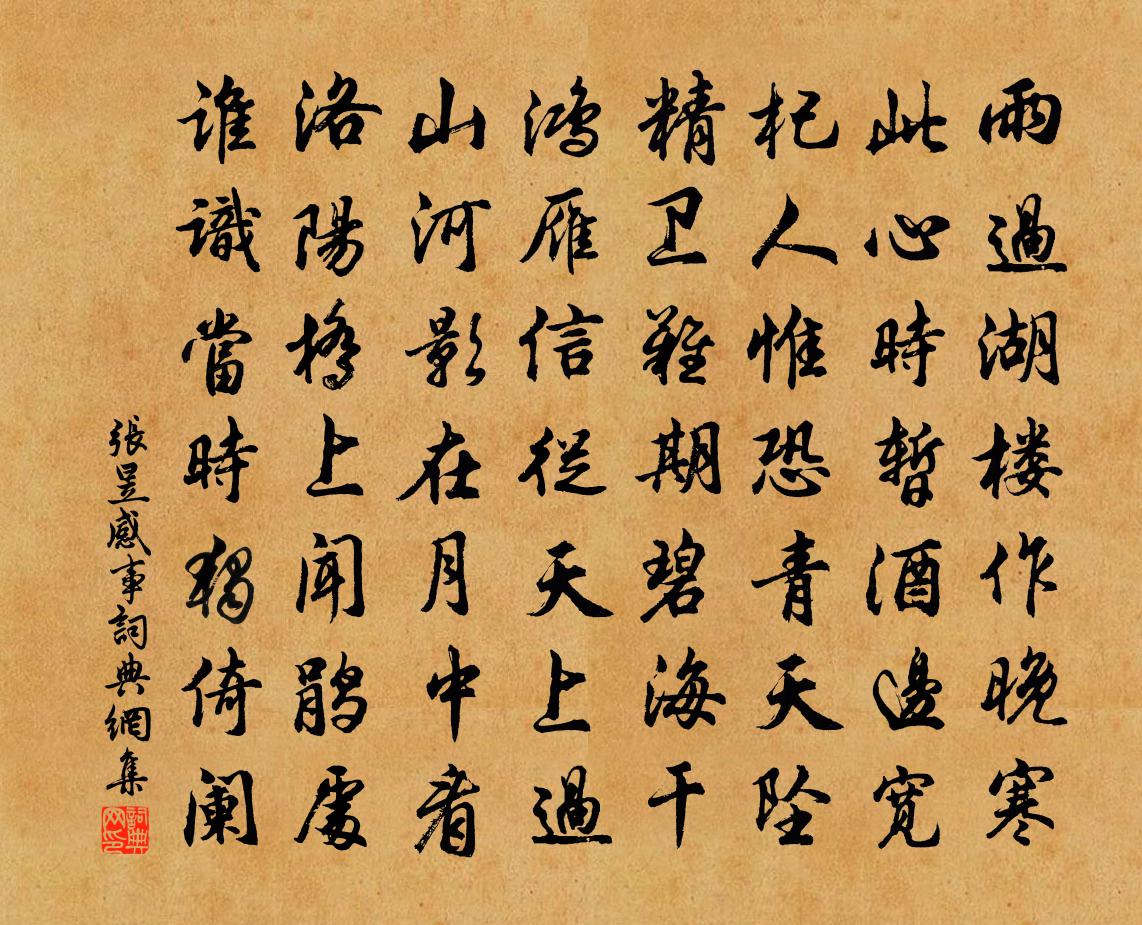 雨過湖楼作晚寒
此心時暫酒邊寛
杞人惟恐青天坠
精卫難期碧海干
鸿雁信從天上過
山河影在月中看
洛陽橋上闻鹃處
誰識當時獨倚阑
張昱感事詞典網集
詞典网印